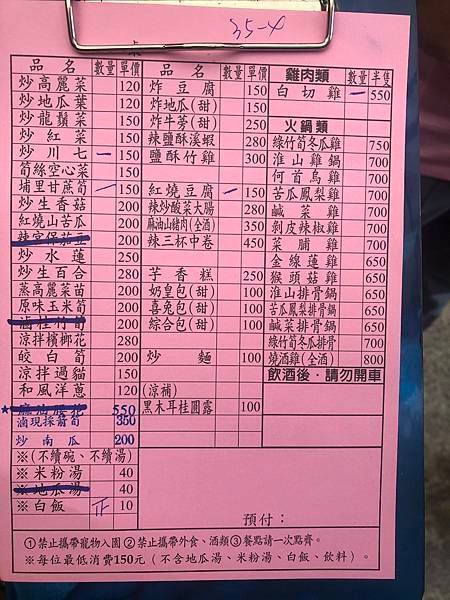 35-4
品名 數量 單價
炒高麗菜 120
炒地瓜葉 120
炒龍鬚菜 150
炒紅菜 150
炒川七 一 150
筍絲空心菜 150
埔里甘蔗筍 一 150
炒生香菇 200
紅燒山苦瓜 200
辣宮保茄豆 200
炒水蓮 250
炒生百合 280
蒸高麗菜苗 200
原味玉米筍 200
滷桂竹筍 200
涼拌檳榔花 280
皎白筍 200
涼拌過貓 150
和風洋蔥 120
★麻油腰花 550
滷現採箭筍 350
炒南瓜 200
※(不續碗、不續湯)
※米粉湯 40
※地瓜湯 40
※白飯 正 10
品名 數量 單價
炸豆腐 150
炸地瓜(甜) 150
炸牛蒡(甜) 250
辣鹽酥溪蝦 280
鹽酥竹雞 300
紅燒豆腐 一 150
辣炒酸菜大腸 280
麻油山豬肉(全酒) 350
辣三杯中卷 450
芋香糕 250
奶皇包(甜) 100
喜兔包(甜) 100
綜合包(甜) 100
炒麵 100
(涼補)
黑木耳桂圓露 100
雞肉類 數量 半隻
白切雞 一 550
火鍋類
綠竹筍冬瓜雞 750
淮山雞鍋 700
何首烏雞 700
苦瓜鳳梨雞 700
鹹菜雞 700
剝皮辣椒雞 700
菜脯雞 700
金線蓮雞 650
猴頭菇雞 650
淮山排骨鍋 650
苦瓜鳳梨排骨鍋 650
鹹菜排骨鍋 650
綠竹筍冬瓜排骨 700
燒酒雞(全酒) 800
飲酒後‧請勿開車
預付：
①禁止攜帶寵物入園②禁止攜帶外食、酒類③餐點請一次點齊。
※每位最低消費150元(不含地瓜湯、米粉湯、白飯、飲料)。